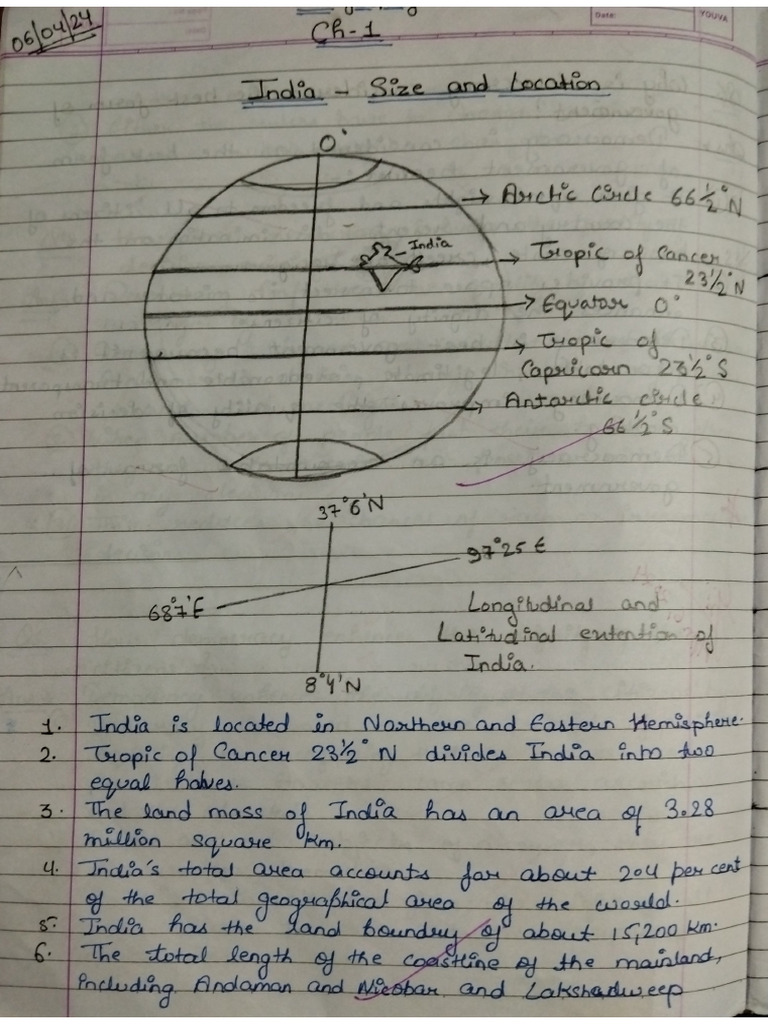 06/04/24
Date:
YOUVA
Ch-1
India - Size and Location
0°
Arctic Circle 66½° N
India
Tropic of Cancer
23½° N
Equator 0°
Tropic of
Capricorn 23½° S
Antarctic circle
66½° S
37°6'N
97°25 E
68°7'E
Longitudinal and
Latitudinal extention of
India.
8°4'N
1. India is located in Northern and Eastern Hemisphere.
2. Tropic of Cancer 23½° N divides India into two
equal halves.
3. The land mass of India has an area of 3.28
million square km.
4. India's total area accounts for about 2.4 per cent
of the total geographical area of the world.
5. India has the land boundry of about 15,200 km.
6. The total length of the coastline of the mainland,
including Andaman and Nicobar and Lakshadweep